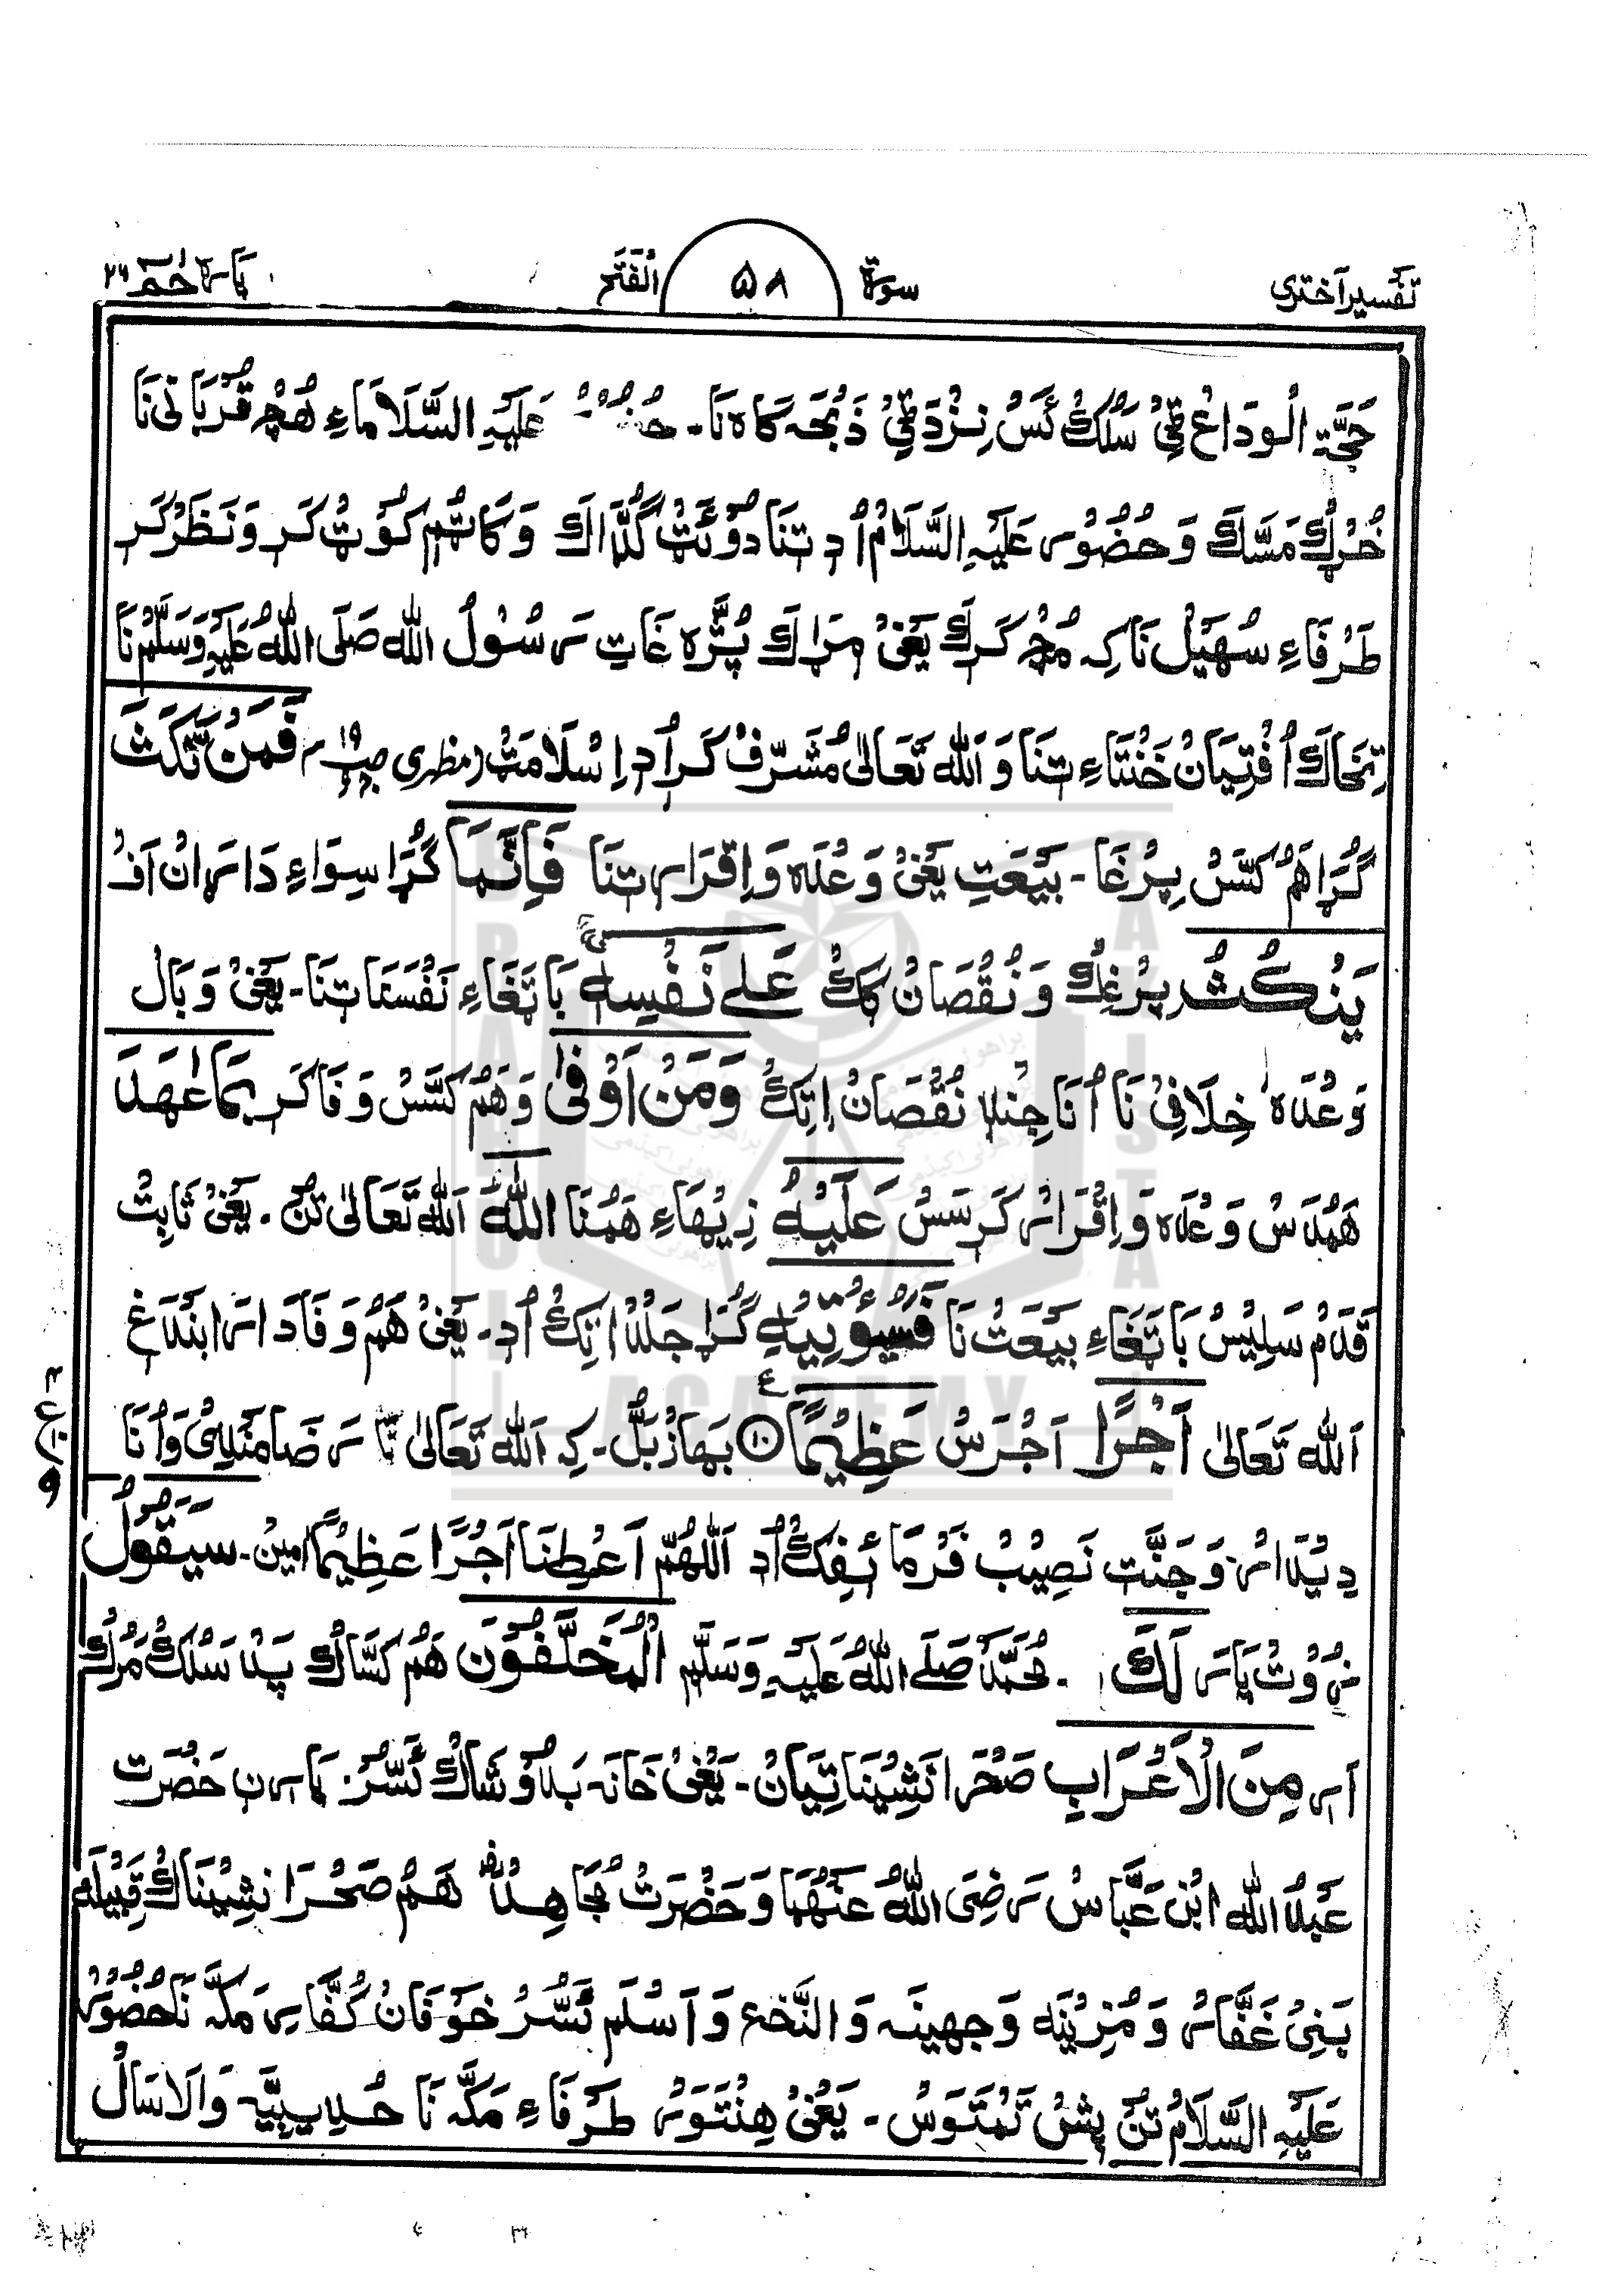 تفسیر اختری
سورۃ ۵۸ الفتح
پارہ حٰمٓ ۲۶
حَجَّۃ الْوِدَاعْ ٹِیْ سَلُکْ ئَسْ نِزْدٹِیْ ذَبْحَہ گاہ نَا۔ عَلَیْہِ السَّلَامَاءِ ھُچْ قُرْبَانیْ نَا
خُرُکْ مَسَّکَ وَحُضُوْر عَلَیْہِ السَّلَامْ اُدِ تِنَا دُوْئَٹْ وَ کَر وَنَظَرْ کَر
طَرْفَاءِ سُھَیْلْ نَا کِہ کَرِکْ یَعْنِیْ پُٹَّہ غَاتِ رَسُوْلُ اللّٰہ صَلَّی اللّٰہُ عَلَیْہِ وَسَلَّمْ نَا
اُفْتِیَانْ خَنْتَاءِ تِنَا وَ اَللّٰہ تَعَالیٰ مُشَرَّفْ کَر اُدِ اِسْلَامَٹْ (مظہری فَمَنْ نَّکَثَ
گُڑَا ھَمْ کَسَّسْ پِرْغَا۔ بَیْعَتِ یَعْنِیْ وَعْدَہ وَاِقْرَارِ تِنَا فَاِنَّمَا گُڑَا سِوَاءِ دَارَانْ اَفْ
یَنْکُثُ پِرْغِکْ وَ نُقْصَانْ کِکْ عَلٰے نَفْسِہٖ بَاتَغَاءِ نَفْسَنَا تِنَا۔ یَعْنِیْ وَبَالْ
وَعْدَہ خِلَافِیْ نَا اُنَا جِنْد نُقْصَانْ اِتِکْ وَمَنْ اَوْفٰی وَھَمْ کَسَّسْ وَفَا کَر بِمَا عٰھَدَ
ھَمُدَسْ وَعْدَہ وَاِقْرَارْ کَرِسَسْ عَلَیْہُ زِیْھَاءِ ھَمُنَا اللّٰہَ اَللّٰہ تَعَالیٰ تُنْ۔ یَعْنِیْ ثَابِتْ
قَدَمْ سَلِیْسْ بَاتَغَاءِ بَیْعَتْ نَا فَسَیُؤْتِیْہِ گُڑَا جَلْدْ اِتِکْ اُدِ۔ یَعْنِیْ ھَمْ وَفَادَارَا بَنْدَغِ
اَللّٰہ تَعَالیٰ اَجْرًا اَجْرَسْ عَظِیْمًا ۱۰ بَھَازْ بَلُّ۔ کِہ اَللّٰہ تَعَالیٰ نَا رَضَامَنْدِیْ وَ اُنَا
دِیْدَارْ وَجَنَّتِ نَصِیْبْ فَرْمَائِفِکْ اُدِ اَللّٰھُمَّ اَعْطِنَا اَجْرًا عَظِیْمًا اٰمِیْنْ۔ سَیَقُوْلُ
زُوْتْ پَارَ لَکَ مُحَمَّدْ صَلَّے اللّٰہُ عَلَیْہِ وَسَلَّمْ الْمُخَلَّفُوْنَ ھَمْ کَسَّاکْ پَدْ سَلُکْ مَرُکْ
اَرِ مِنَ الْاَعْرَابِ صَحْرَا نَشِیْنَا تِیَانْ۔ یَعْنِیْ خَانَہ بَدُوْشَاکْ ئَسُّرْ۔ پَارِن حَضْرَت
عَبْدُ اللّٰہِ ابْنِ عَبَّاسْ رَضِیَ اللّٰہُ عَنْھُمَا وَحَضْرَتْ مُجَاھِدْ ھَمْ صَحْرَا نَشِیْنَاکْ قَبِیْلَہ
بَنِیْ غَفَّارْ وَ مُزِیْنَہ وَجھینَہ وَالنَّخْع وَ اَسْلَم ئَسُّرْ خَوْفَانْ کُفَّارِ مَکَّہ نَا حُضُوْر
عَلَیْہِ السَّلَامْ تُنْ پِشْ تَمَتَوَسْ۔ یَعْنِیْ ھِنْتَوَرْ طَرْفَاءِ مَکَّہ نَا حُدِیبِیَّہ وَالَا سَالْ